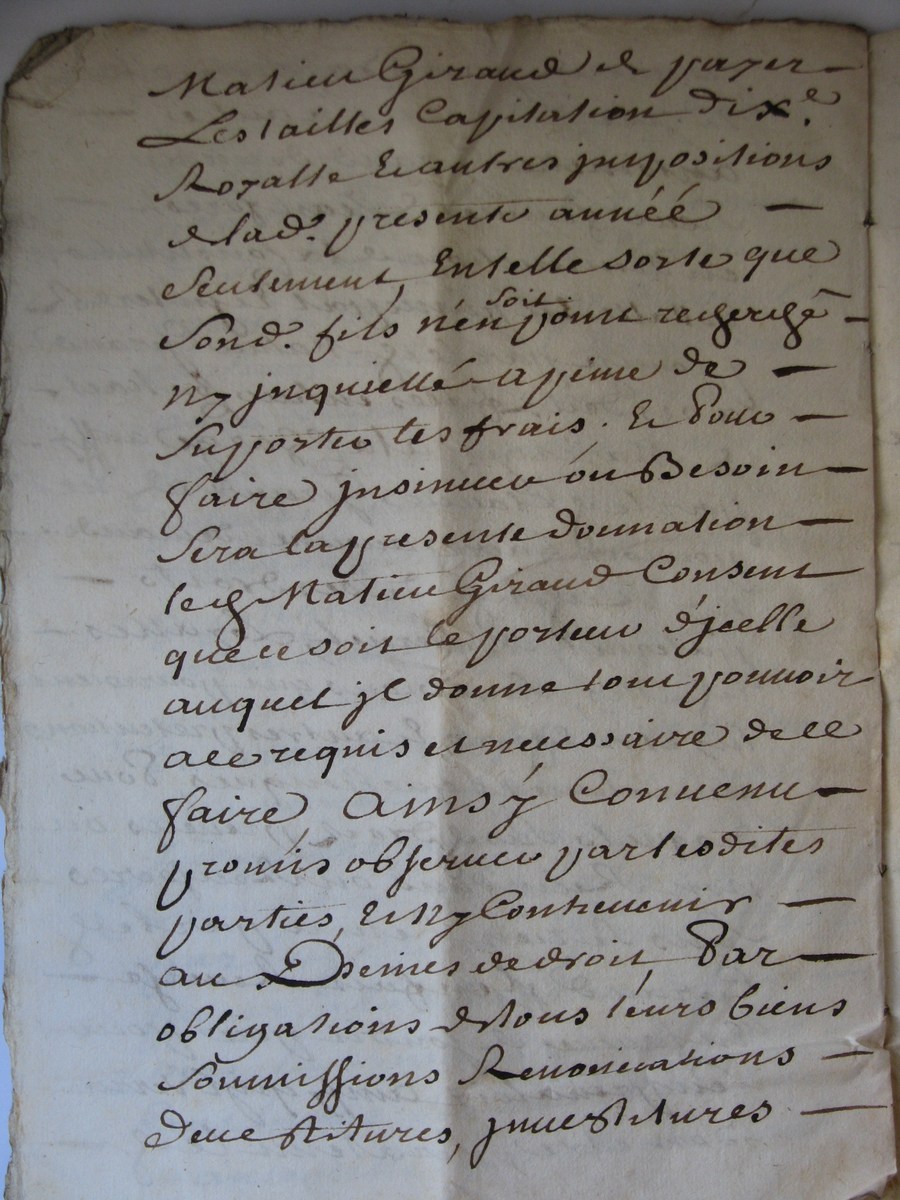 Matieu Giraud de payer
Les tailles Capitation dix.e
Royalle Et autres jmpositions
de lad. presente année
Seulement, En telle sorte que
Sond. fils n'en soit point recherché
ny jnquietté a peine de
Suporter les frais. Et Pour
faire jnsinuer ou Besoin
Sera la presente donnation
led Matieu Giraud Consent
que ce soit le porteur d'jcelle
auquel jl donne tout pouvoir
a ce requis et necessaire de le
faire, Ainsy Convenu
promis observer par lesdites
parties, Et n'y Contrevenir
au Peines de droit, Par
obligations de tous leurs biens
Soumissions Renonciations
devestitures, jnvestitures